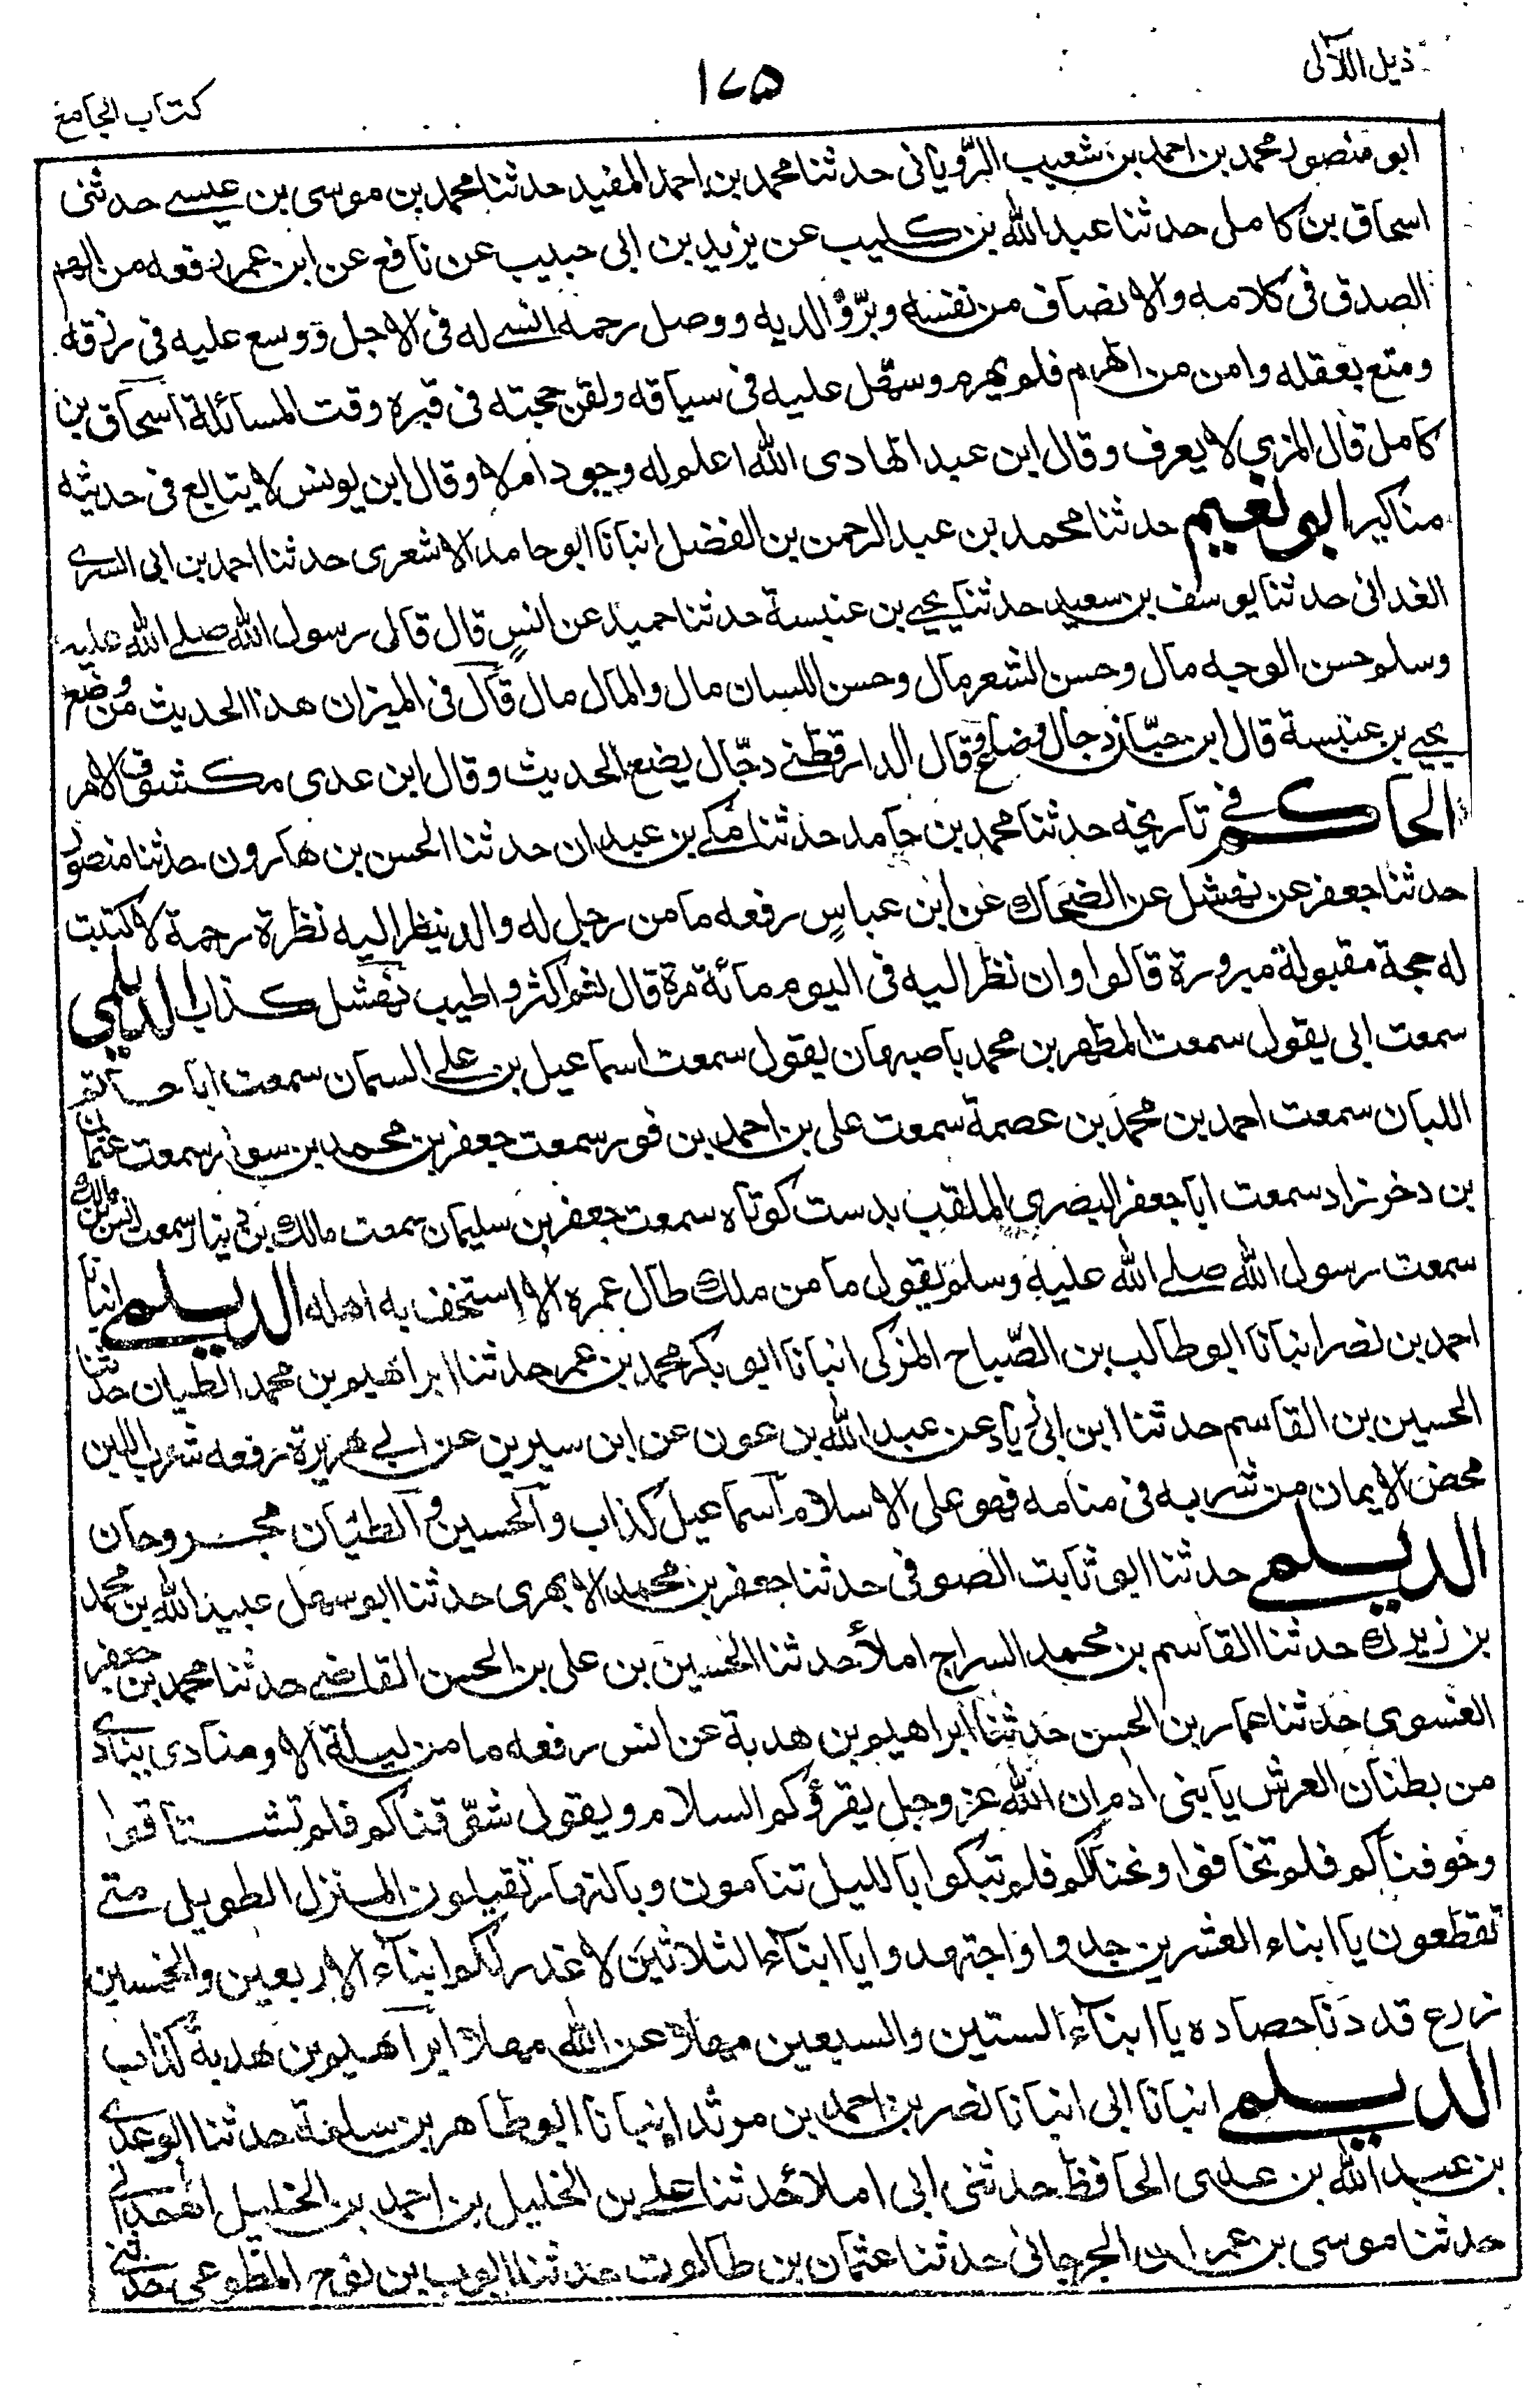 ذيل اللآلى
١٧٥
كتاب الجامع
ابو منصور محمد بن احمد بن شعيب الرّويانى حدثنا محمد بن احمد المفيد حدثنا محمد بن موسى بن عيسے حدثنى
اسحاق بن كامل حدثنا عبد الله بن كليب عن يزيد بن ابى حبيب عن نافع عن ابن عمر رفعه من الهم
الصدق فى كلامه والانصاف من نفسه وبرّ والديه ووصل رحمه انسے له فى الاجل ووسع عليه فى رزقه
ومتع بعقله وامن من الهرم فلم يهرم وسهّل عليه فى سياقه ولقن حجته فى قبره وقت المسائلة اسحاق بن
كامل قال المزى لا يعرف وقال ابن عبد الهادى الله اعلم له وجود ام لا وقال ابن يونس لا يتابع فى حديثه
مناكير ابو نعيم حدثنا محمد بن عبد الرحمن بن الفضل انبانا ابو حامد الاشعرى حدثنا احمد بن ابى السرى
الغدانى حدثنا يوسف بن سعيد حدثنا يحيے بن عنبسة حدثنا حميد عن انس قال قال رسول الله صلے الله عليه
وسلم حسن الوجه مال وحسن الشعر مال وحسن اللسان مال والمال مال قال فى الميزان هذا الحديث من وضع
يحيے بن عنبسة قال ابن حبّان دجال وضاع وقال الدارقطنے دجّال يضع الحديث وقال ابن عدى مكشوف الامر
الحاكم فے تاريخه حدثنا محمد بن حامد حدثنا مكے بن عبدان حدثنا الحسن بن هارون حدثنا منصور
حدثنا جعفر عن نهشل عن الضحاك عن ابن عباس رفعه ما من رجل له والد ينظر اليه نظرة رحمة الا كتبت
له حجة مقبولة مبرورة قالوا وان نظر اليه فى اليوم مائة مرة قال نعم اكثر واطيب نهشل كذاب الديلمى
سمعت ابى يقول سمعت المظهر بن محمد باصبهان يقول سمعت اسماعيل بن علے السمان سمعت ابا حاتم
اللبان سمعت احمد بن محمد بن عصمة سمعت على بن احمد بن فور سمعت جعفر بن محمد بن سوار سمعت عثمان
بن دخوزاد سمعت ابا جعفر البصرى الملقب بدست كوتاه سمعت جعفر بن سليمان سمعت مالك بن دينار سمعت انس بن مالك
سمعت رسول الله صلے الله عليه وسلم يقول ما من ملك طال عمره الا استخف به اهله الديلمے انبانا
احمد بن نصر انبانا ابو طالب بن الصّباح المزكى انبانا ابو بكر محمد بن عمر حدثنا ابراهيم بن محمد الطيان حدثنا
الحسين بن القاسم حدثنا ابن ابى زياد عن عبد الله بن عون عن ابن سيرين عن ابى هريرة رفعه شرب اللبن
محض الايمان من شربه فى منامه فهو على الاسلام اسماعيل كذاب والحسين والطيّان مجروحان
الديلمے حدثنا ابو ثابت الصوفى حدثنا جعفر بن محمد الابهرى حدثنا ابو سهل عبيد الله بن محمد
بن زيرك حدثنا القاسم بن محمد السراج املأ حدثنا الحسين بن على بن الحسن القاضے حدثنا محمد بن جعفر
الفسوى حدثنا عمار بن الحسن حدثنا ابراهيم بن هدبة عن انس رفعه ما من ليلة الا ومنادى ينادى
من بطنان العرش يا بنى ادم ان الله عز وجل يقرؤكم السلام ويقول شوّقناكم فلم تشتاقوا
وخوفناكم فلم تخافوا ونحنالكم فلم تبكوا يا بالليل تنامون وبالنهار تقيلون المنزل الطويل متے
تقطعون يا ابناء العشرين جدوا واجتهدوا يا ابناء الثلاثين لا عذر لكم ابناء الاربعين والخمسين
زرع قد دنا حصاده يا ابناء الستين والسبعين مهلا عن الله مهلا ابراهيم بن هدبة كذاب
الديلمے انبانا ابى انبانا نصر بن احمد بن مرثد انبانا ابو طاهر بن سلمة حدثنا ابو عدى
بن عبد الله بن عدى الحافظ حدثنى ابى املأ حدثنا علے بن الخليل بن احمد بن الخليل
حدثنا موسى بن عمران الجرجانى حدثنا عثمان بن طالوت حدثنا ايوب بن نوح المطوعى حدثنے